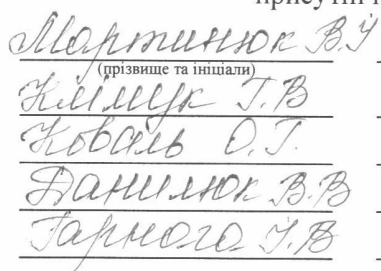 присутні
Мартинюк В.І
(прізвище та ініціали)
Клімук Т.В
Коваль О.Г.
Данилюк В.В
Гарного І.В